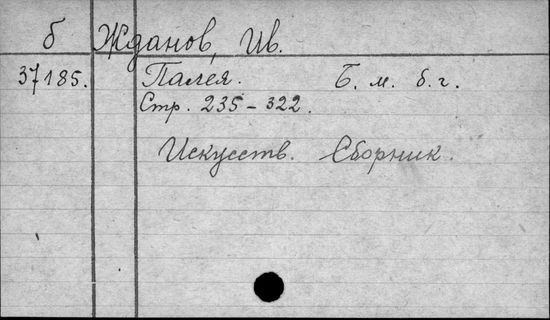 б Жданов, Ив.
37185. Палея. Б. м. б. г.
Стр. 235-322.
Искусств. Сборник.